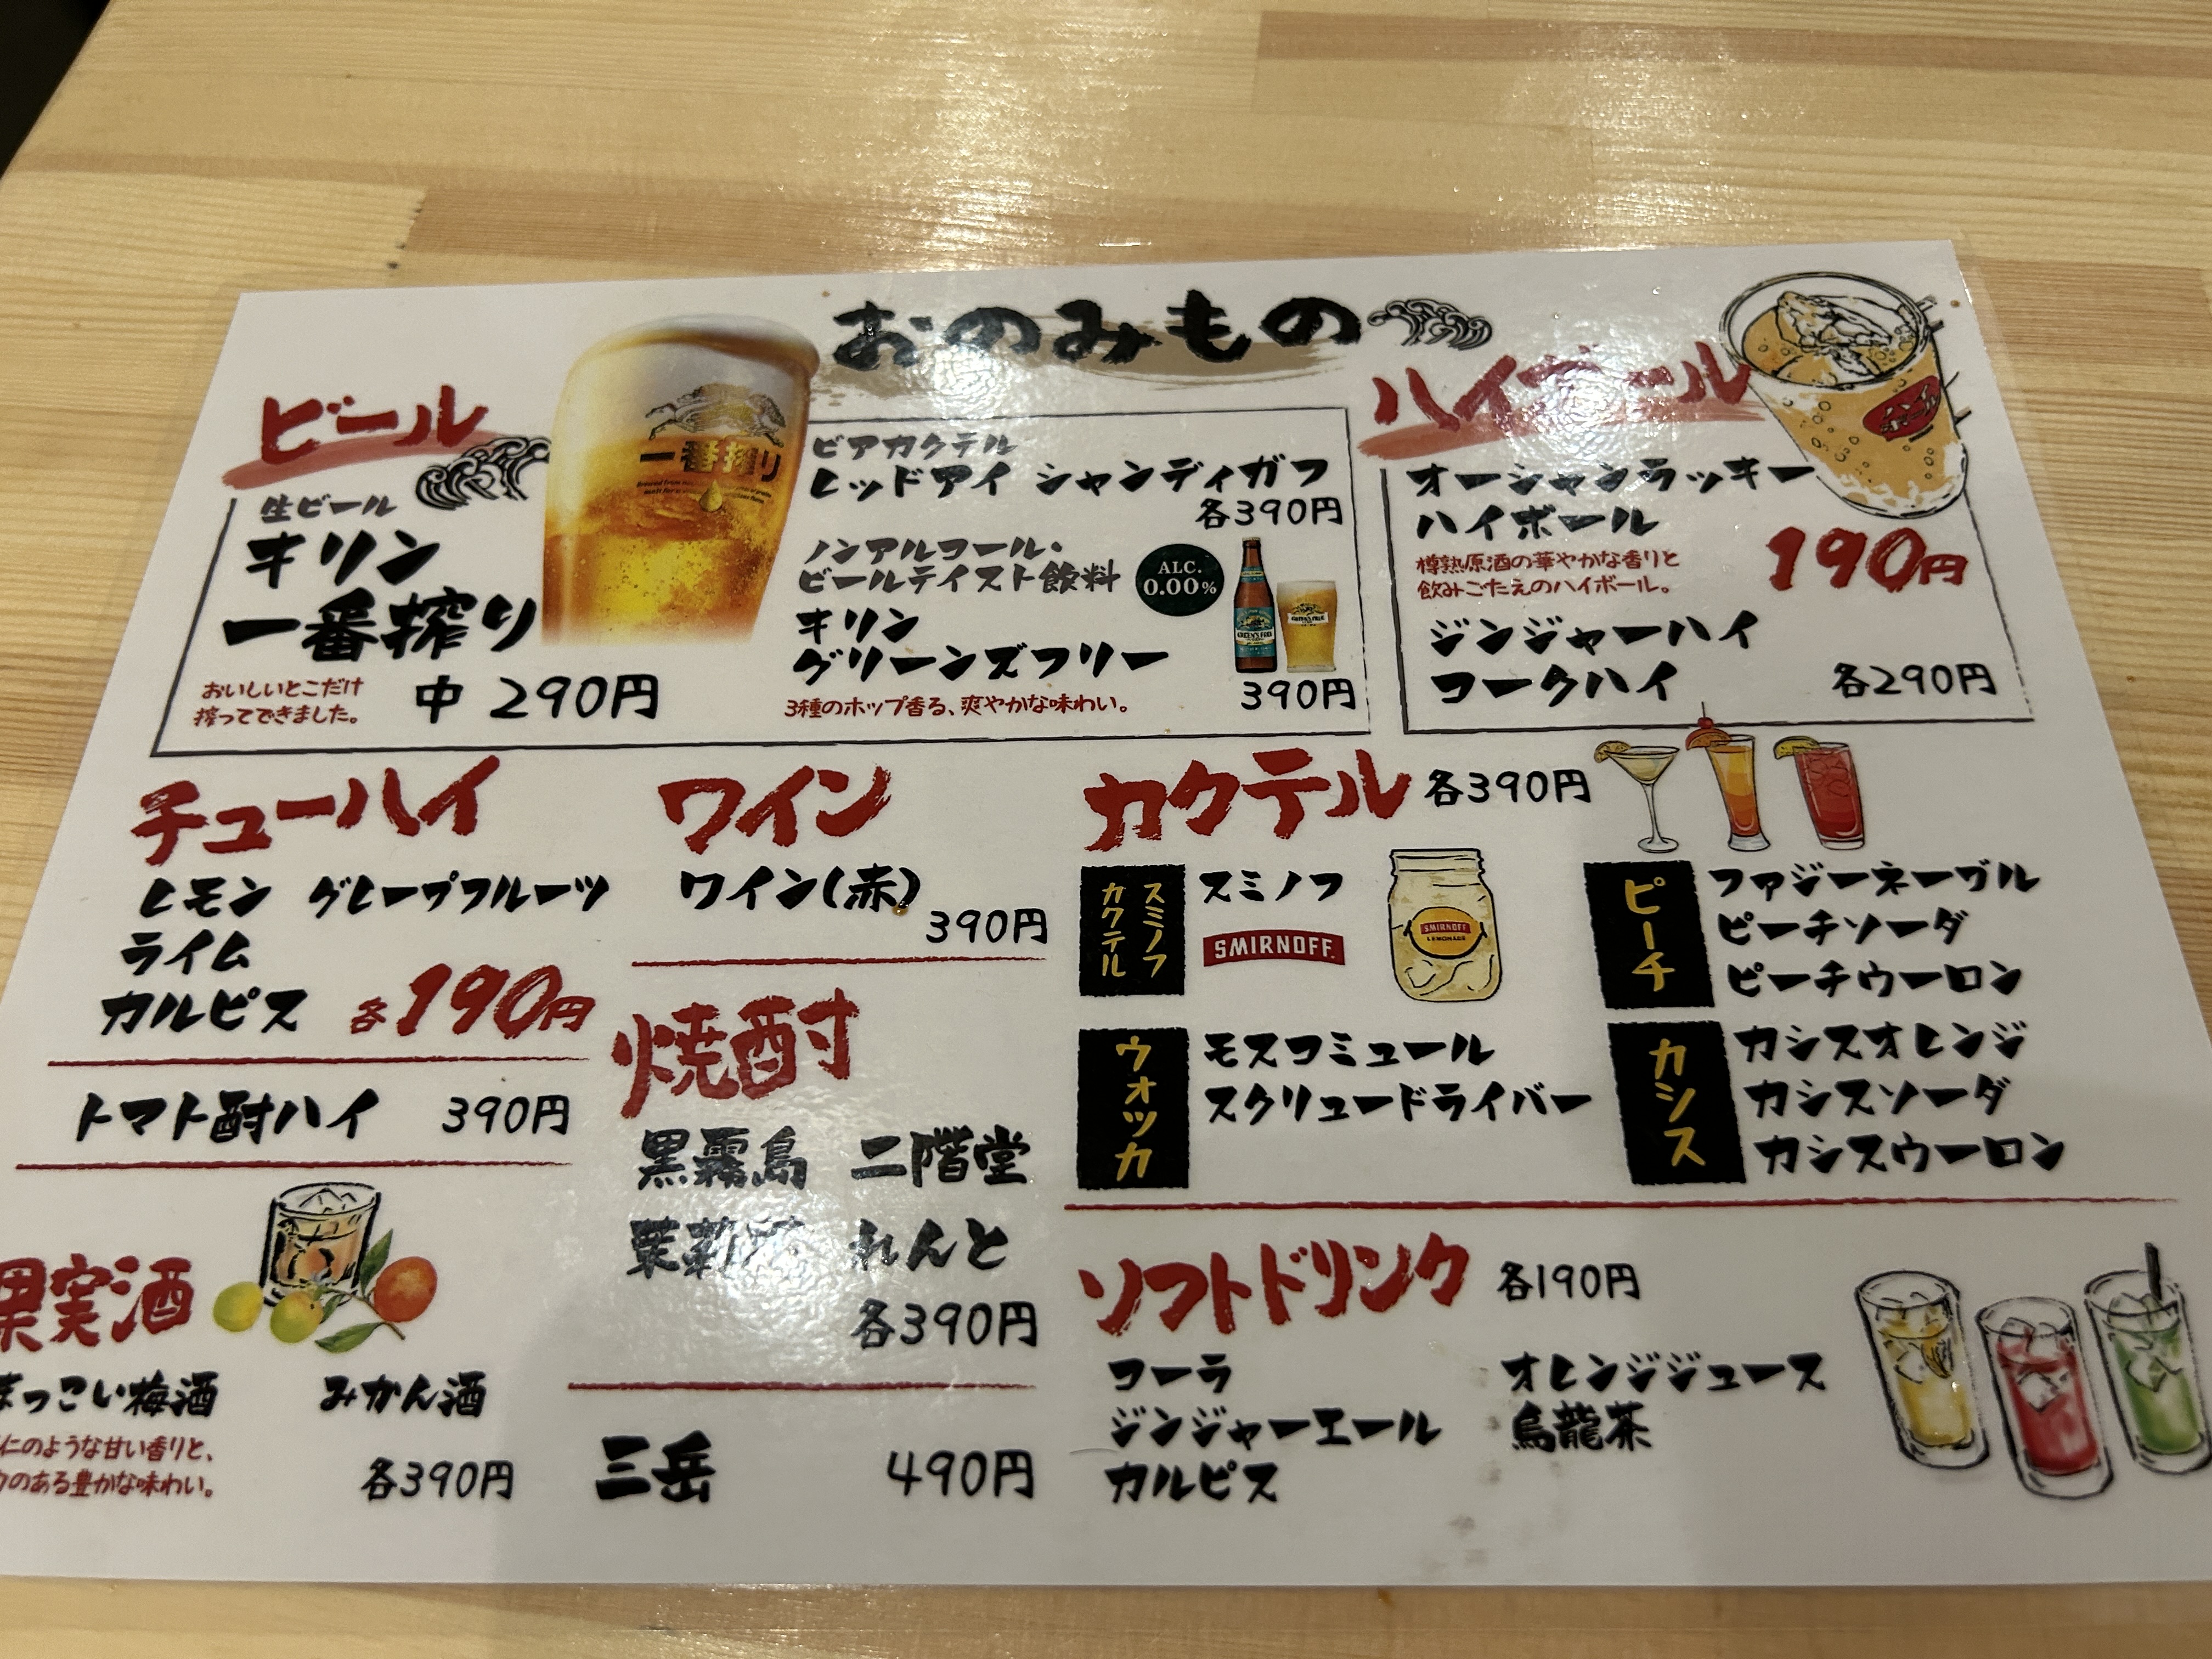 おのみもの
ビール
生ビール
キリン
一番搾り
おいしいとこだけ
搾ってできました。
中 290円
一番搾り
ビアカクテル
レッドアイ シャンディガフ
各390円
ノンアルコール・
ビールテイスト飲料
ALC.
0.00%
キリン
グリーンズフリー
3種のホップ香る、爽やかな味わい。
390円
ハイボール
オーシャンラッキー
ハイボール
樽熟原酒の華やかな香りと
飲みごたえのハイボール。
190円
ジンジャーハイ
コークハイ
各290円
チューハイ
レモン グレープフルーツ
ライム
カルピス 各190円
トマト酎ハイ 390円
果実酒
まっこい梅酒 みかん酒
仁のような甘い香りと、
のある豊かな味わい。
各390円
ワイン
ワイン(赤)
390円
焼酎
黒霧島 二階堂
茉莉花 れんと
各390円
三岳 490円
カクテル 各390円
スミノフ
カクテル
スミノフ
SMIRNOFF
SMIRNOFF
LEMONADE
ウォッカ
モスコミュール
スクリュードライバー
ピーチ
ファジーネーブル
ピーチソーダ
ピーチウーロン
カシス
カシスオレンジ
カシスソーダ
カシスウーロン
ソフトドリンク 各190円
コーラ
ジンジャーエール
カルピス
オレンジジュース
烏龍茶